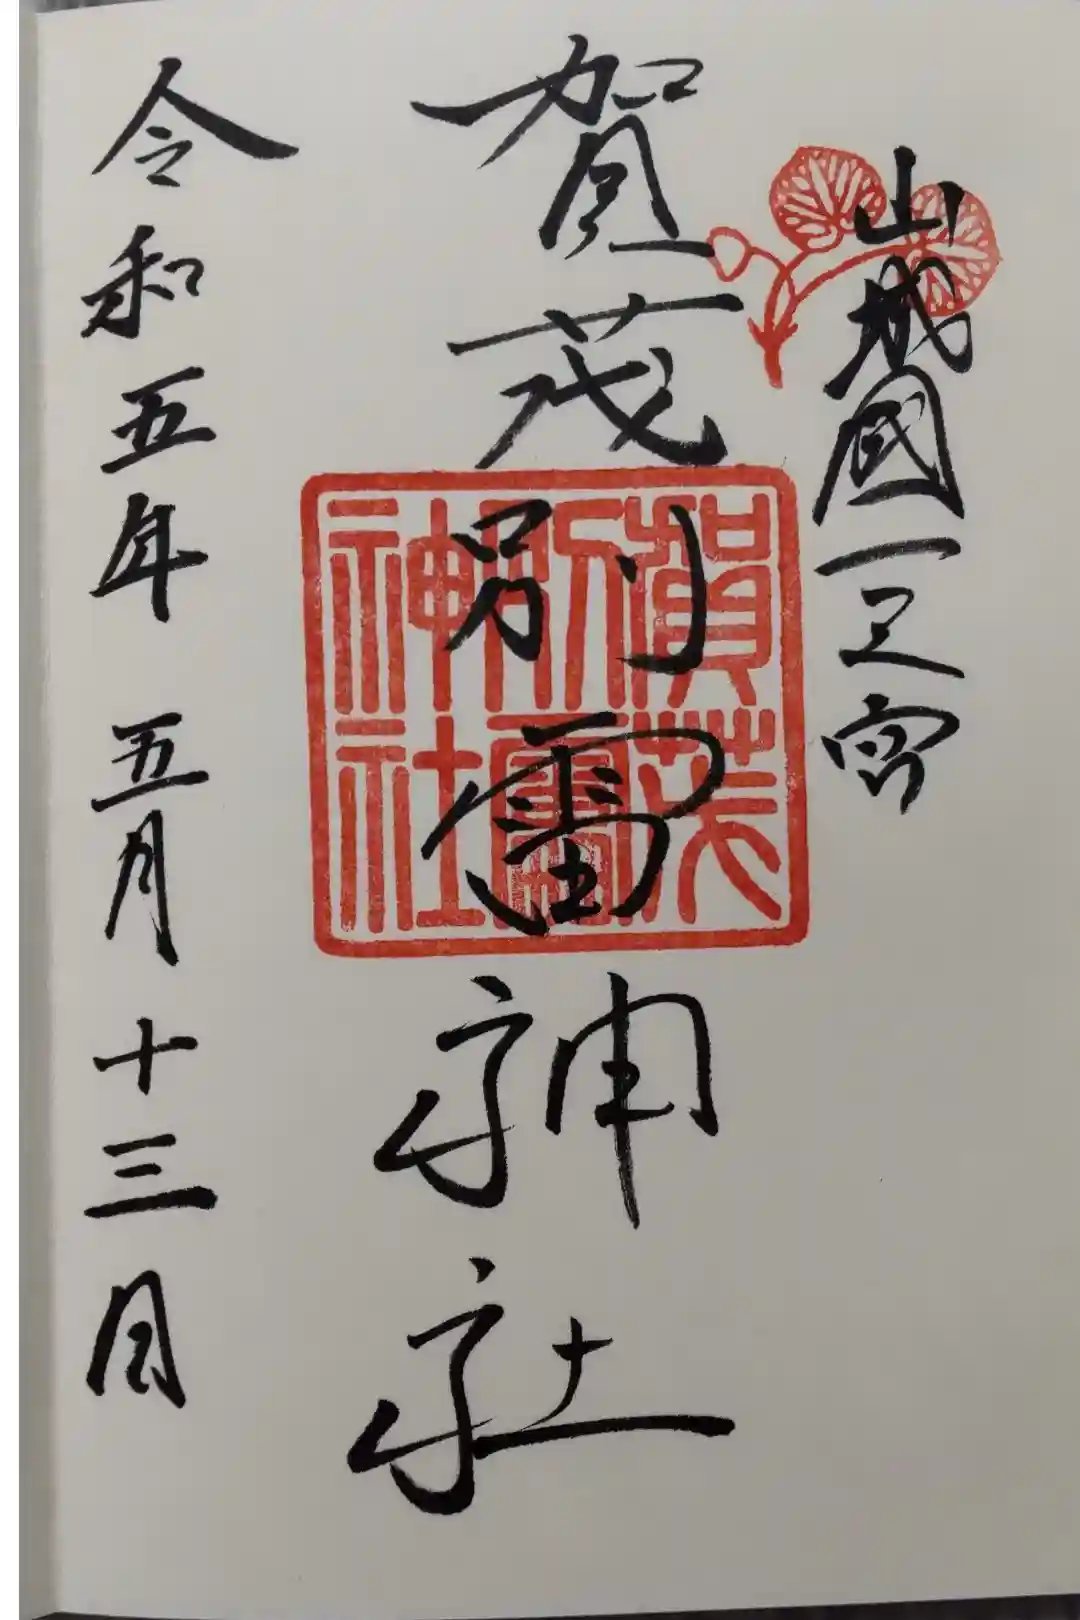 山城國一之宮
賀茂別雷神社
賀茂別雷神社
令和五年 五月十三日